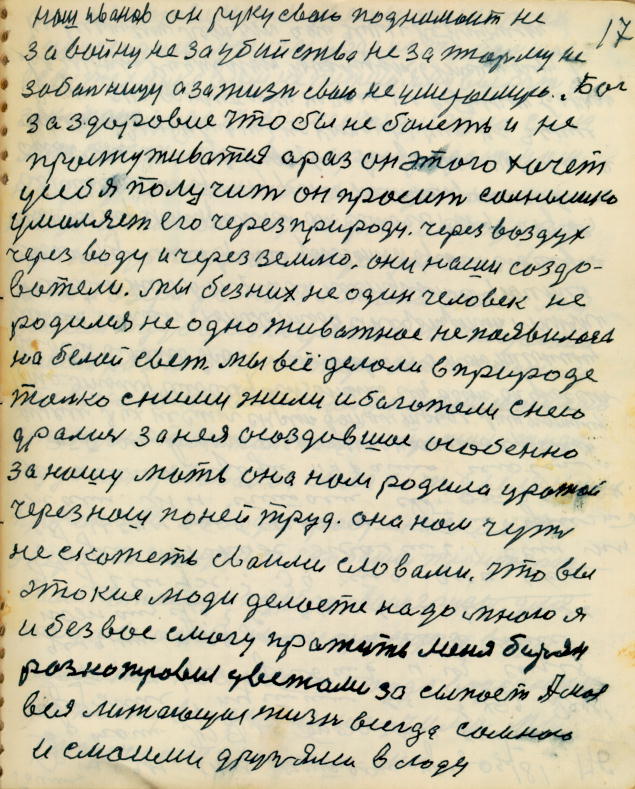 17
наш Иванов он руку свою поднимает не
за войну не за убийства не за тюрьму не
за бальницу а за жизнь свою не умераемую. Бог
за здоровие что бы не болеть и не
простуживатся а раз он этого хочет
у себя получит он просит солнышко
умоляет его через природу. через воздух
через воду и через землю. они наши создо-
ватели. мы без них не один человек не
родился не одно живатное не появилося
на белой свет мы всё делали в природе
толко с ними жили и богатели с нею
дралися за нея создавшое особенно
за нашу мать она нам родила урожай
через наш по ней труд. она нам чуть
не скажеть своими словами. что вы
этокие люди делаете надо мною я
и без вас смогу прожить меня бурян
разнотровый цветами за сыпает А моя
вся летающия жизн всегда со мною
и с моими друзями в ладу